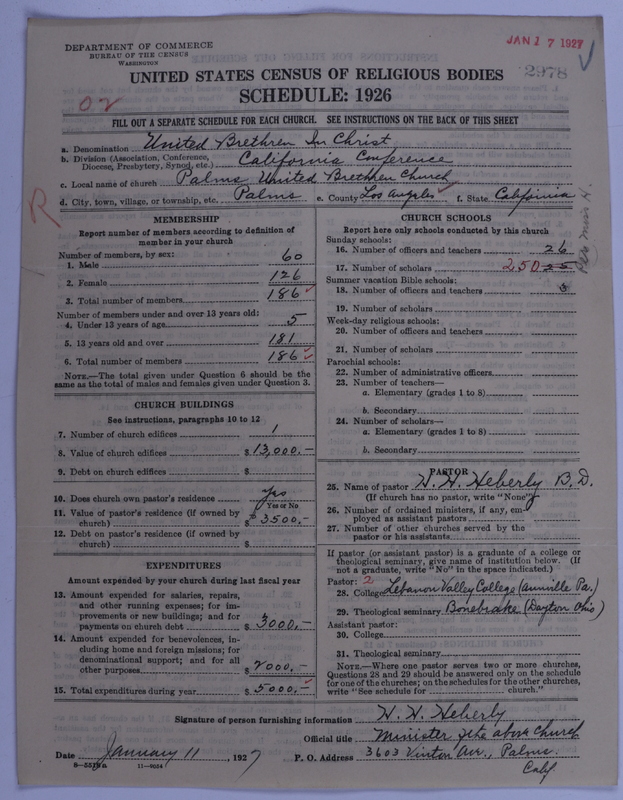 DEPARTMENT OF COMMERCE
BUREAU OF THE CENSUS
WASHINGTON
JAN 17 1927
2978
UNITED STATES CENSUS OF RELIGIOUS BODIES
SCHEDULE: 1926
02
FILL OUT A SEPARATE SCHEDULE FOR EACH CHURCH. SEE INSTRUCTIONS ON THE BACK OF THIS SHEET
a. Denomination United Brethren In Christ
b. Division (Association, Conference, Diocese, Presbytery, Synod, etc.) California Conference
c. Local name of church Palms United Brethren Church
d. City, town, village, or township, etc. Palms e. County Los Angeles f. State California
R
MEMBERSHIP
Report number of members according to definition of
member in your church
Number of members, by sex:
1. Male 60
2. Female 126
3. Total number of members 186
Number of members under and over 13 years old:
4. Under 13 years of age 5
5. 13 years old and over 181
6. Total number of members 186
NOTE.—The total given under Question 6 should be the
same as the total of males and females given under Question 3.
CHURCH BUILDINGS
See instructions, paragraphs 10 to 12
7. Number of church edifices 1
8. Value of church edifices $13,000.—
9. Debt on church edifices $
10. Does church own pastor's residence yes
Yes or No
11. Value of pastor's residence (if owned by
church) $3500.—
12. Debt on pastor's residence (if owned by
church) $
EXPENDITURES
Amount expended by your church during last fiscal year
13. Amount expended for salaries, repairs,
and other running expenses; for im-
provements or new buildings; and for
payments on church debt $3000.—
14. Amount expended for benevolences, in-
cluding home and foreign missions; for
denominational support; and for all
other purposes $2000.—
15. Total expenditures during year $5000.—
CHURCH SCHOOLS
Report here only schools conducted by this church
Sunday schools:
16. Number of officers and teachers 26
17. Number of scholars 250
Summer vacation Bible schools:
18. Number of officers and teachers
19. Number of scholars
Week-day religious schools:
20. Number of officers and teachers
21. Number of scholars
Parochial schools:
22. Number of administrative officers
23. Number of teachers—
a. Elementary (grades 1 to 8)
b. Secondary
24. Number of scholars—
a. Elementary (grades 1 to 8)
b. Secondary
PASTOR
25. Name of pastor H. H. Heberly B.D.
(If church has no pastor, write "None")
26. Number of ordained ministers, if any, em-
ployed as assistant pastors
27. Number of other churches served by the
pastor or his assistants
If pastor (or assistant pastor) is a graduate of a college or
theological seminary, give name of institution below. (If
not a graduate, write "No" in the space indicated.)
Pastor: 2
28. College Lebanon Valley College (Annville Pa.)
29. Theological seminary Bonebrake (Dayton Ohio)
Assistant pastor:
30. College
31. Theological seminary
NOTE.—Where one pastor serves two or more churches,
Questions 28 and 29 should be answered only on the schedule
for one of the churches; on the schedules for the other churches,
write "See schedule for church."
Signature of person furnishing information H. H. Heberly
Official title Minister of the above church
Date January 11, 1927 P. O. Address 3603 Vinton Av., Palms.
Calif.
11—9054